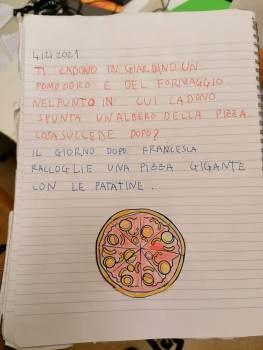 4/2/2021
TI CADONO IN GIARDINO UN
POMODORO E DEL FORMAGGIO
NEL PUNTO IN CUI CADONO
SPUNTA UN ALBERO DELLA PIZZA.
COSA SUCCEDE DOPO?
IL GIORNO DOPO FRANCESCA
RACCOGLIE UNA PIZZA GIGANTE
CON LE PATATINE.